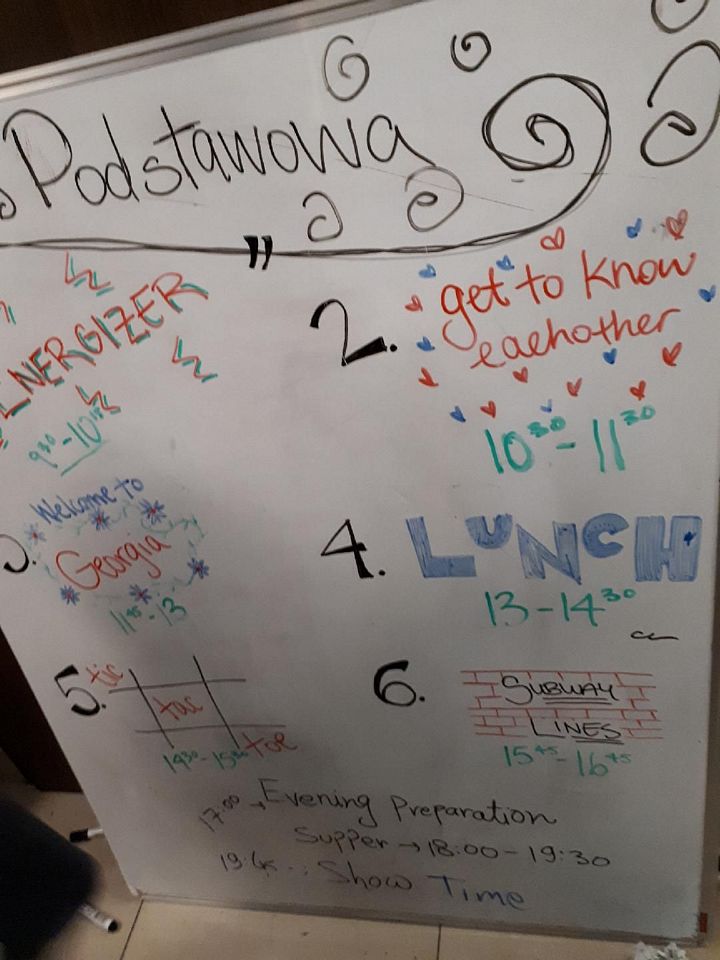 Podstawowa
"
ENERGIZER
9³⁰-10¹⁵
2. get to know
eachother
10³⁰-11³⁰
Welcome to
Georgia
11⁴⁵-13
4. LUNCH
13-14³⁰
5. tic
tac
toe
14³⁰-15³⁰
6. SUBWAY
LINES
15⁴⁵-16⁴⁵
17:00 → Evening Preparation
Supper → 18:00-19:30
19:45 .. Show Time